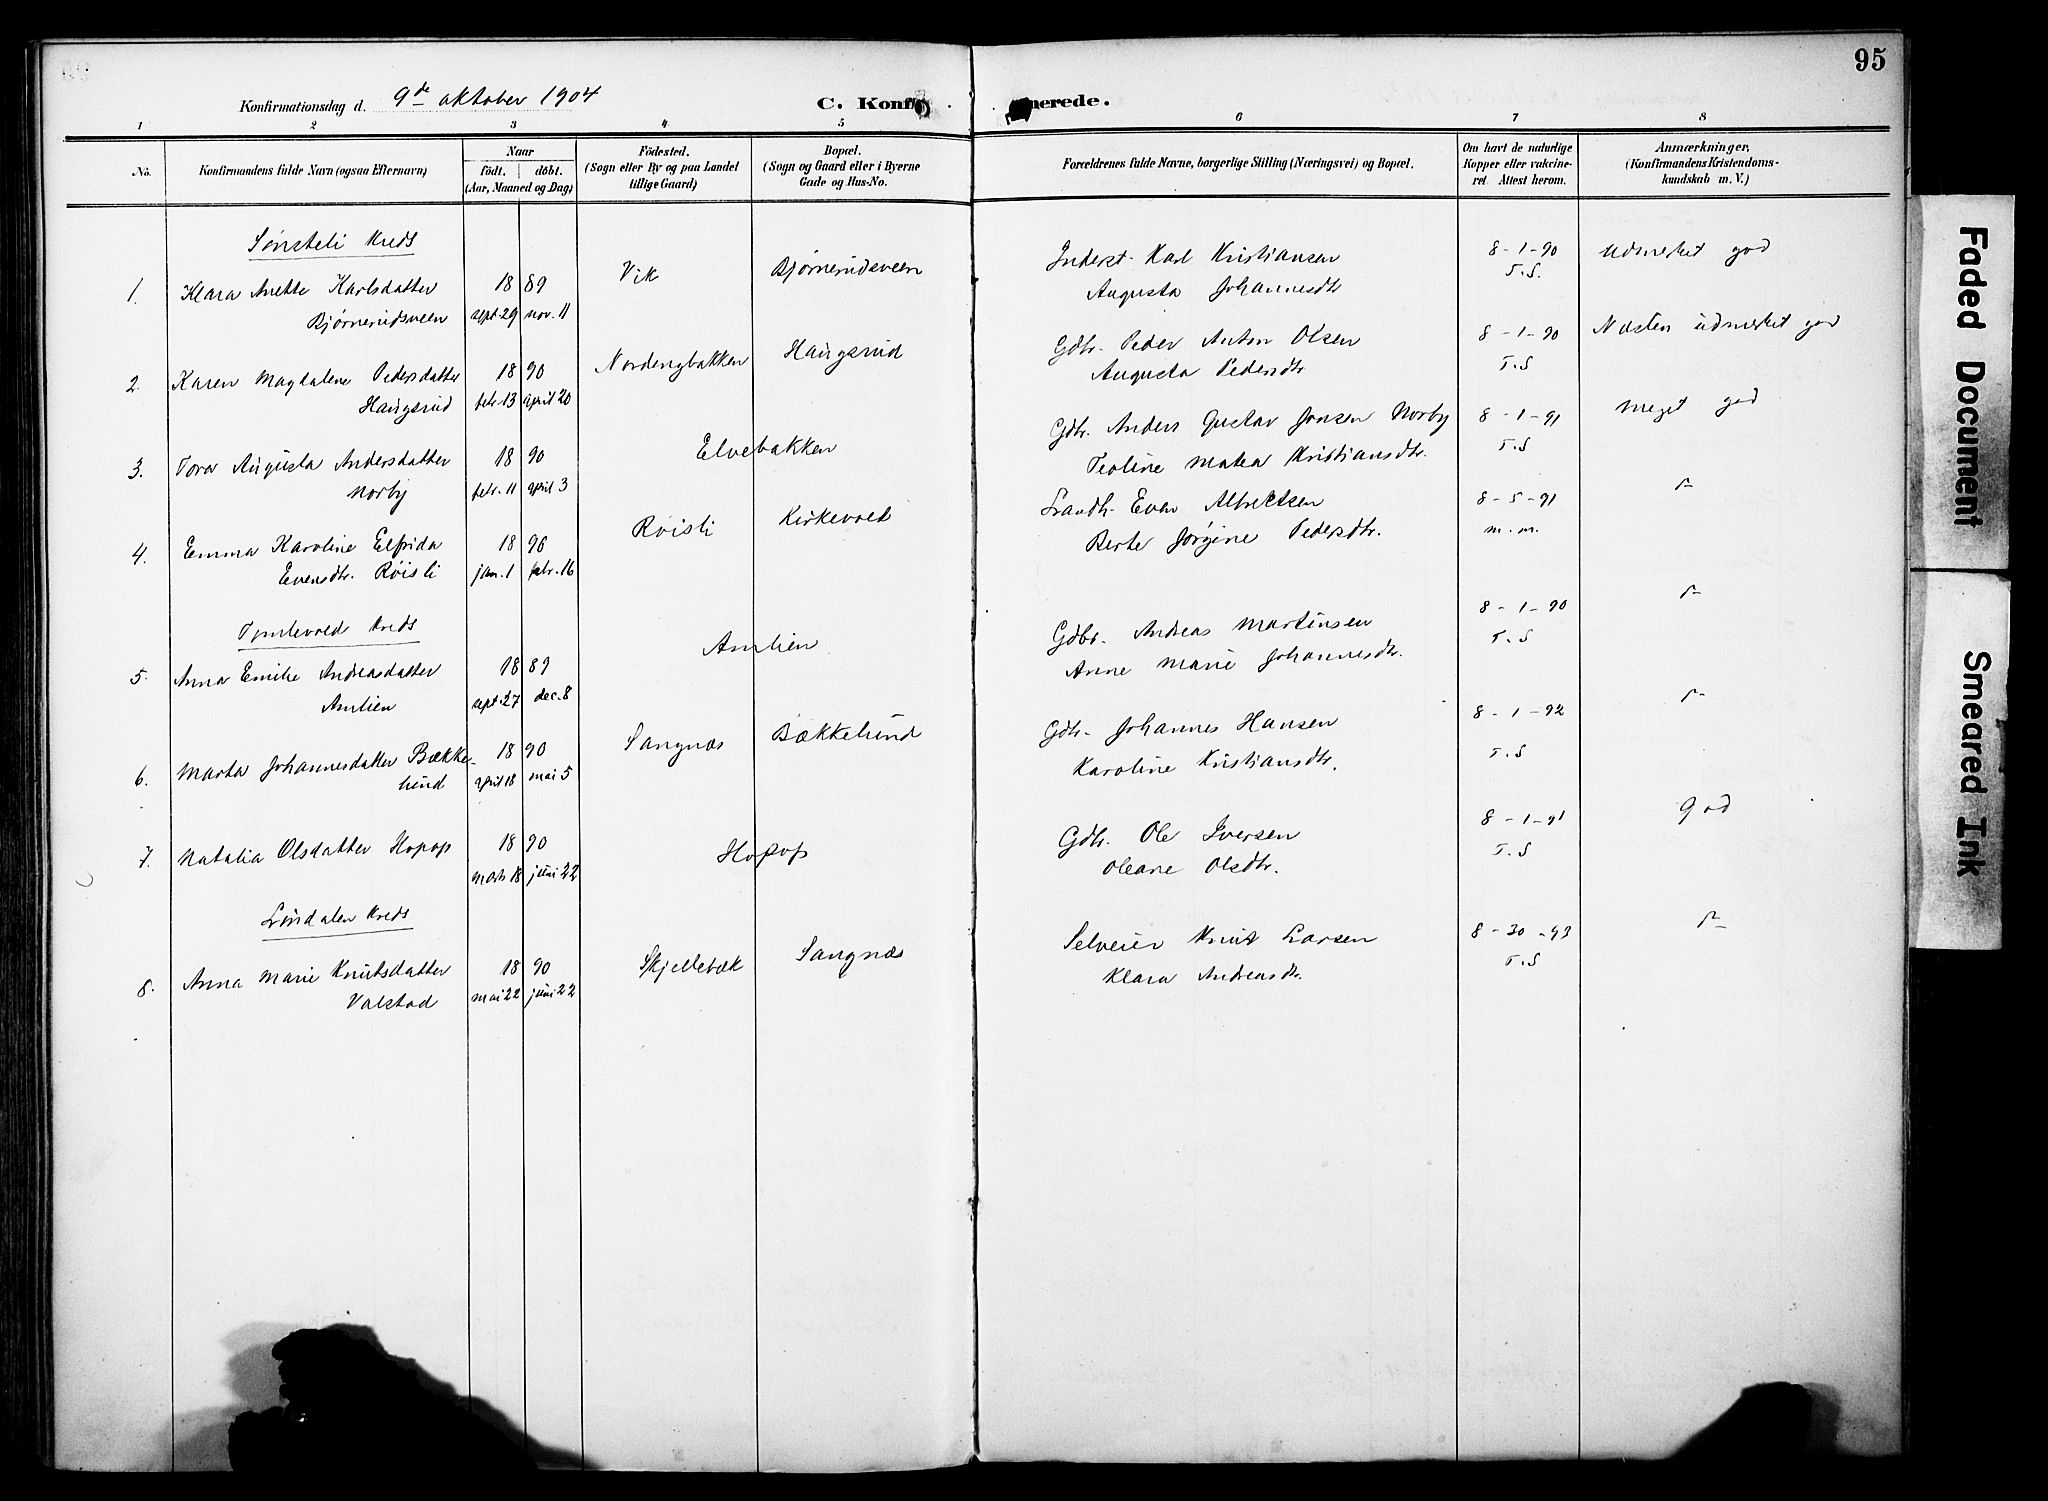 95
Konfirmationsdag d. 9de oktober 1904 C. Konfi merede.
1 2 3 4 5 6 7 8
No. Konfirmandens fulde Navn (ogsaa Efternavn) Naar födt. döbt. (Aar, Maaned og Dag) Födested. (Sogn eller By og paa Landet tillige Gaard) Bopæl. (Sogn og Gaard eller i Byerne Gade og Hus-No. Forældrenes fulde Navne, borgerlige Stilling (Næringsvei) og Bopæl. Om havt de naturlige Kopper eller vakcineret. Attest herom. Anmærkninger. (Konfirmandens Kristendomskundskab m. V.)
Sønsteli Kreds
1. Klara Anette Karlsdatter 18 89 Vik Bjørnerudsveen Inderst Karl Kristiansen 8-1-90 Udmerket god
Bjørnerudsveen sept. 29 nov. 11 Augusta Johannesdtr T.S.
2. Karen Magdalene Pedersdatter 18 90 Nordengbakken Haugsrud Gdbr. Peder Anton Olsen 8-1-90 Næsten udmerket god
Haugsrud febr. 13 april 20 Augusta Pedersdtr T.S
3. Tora Augusta Andersdatter 18 90 Elvebakken Gdbr. Anders Gustav Jonsen Norby 8-1-91 Meget god
Norby febr. 11 april 3 Teoline Matea Kristiansdtr. T.S
4. Emma Karoline Elfrida 18 90 Røisli Kirkevold Even Albrektsen 8-5-91
Evensdtr. Røisli jan. 1 febr. 16 Berte Jørgine Pedersdtr. m.m.
Tømlevold Kreds
5. Anna Emilie Andreasdatter 18 89 Amlien Gdbr. Andreas Martinsen 8-1-90
Amlien sept. 27 dec. 8 Anne Marie Johannesdtr. T.S
6. Marta Johannesdatter Bække- 18 90 Sangnæs Bækkelund Gdbr. Johannes Hansen 8-1-92
lund april 18 mai 5 Karoline Kristiansdtr. T.S
7. Natalia Olsdatter Hopop 18 90 Hopop Gdbr. Ole Iversen 8-1-91 God
marts 18 juni 22 Oleane Olsdtr. T.S
Løndalen Kreds
8. Anna Marie Knutsdatter 18 90 Skjellebæk Sangnæs Selveier Knut Larsen 8-30-93
Valstad mai 22 juni 22 Klara Andreasdtr. T.S
Faded Document
Smeared Ink